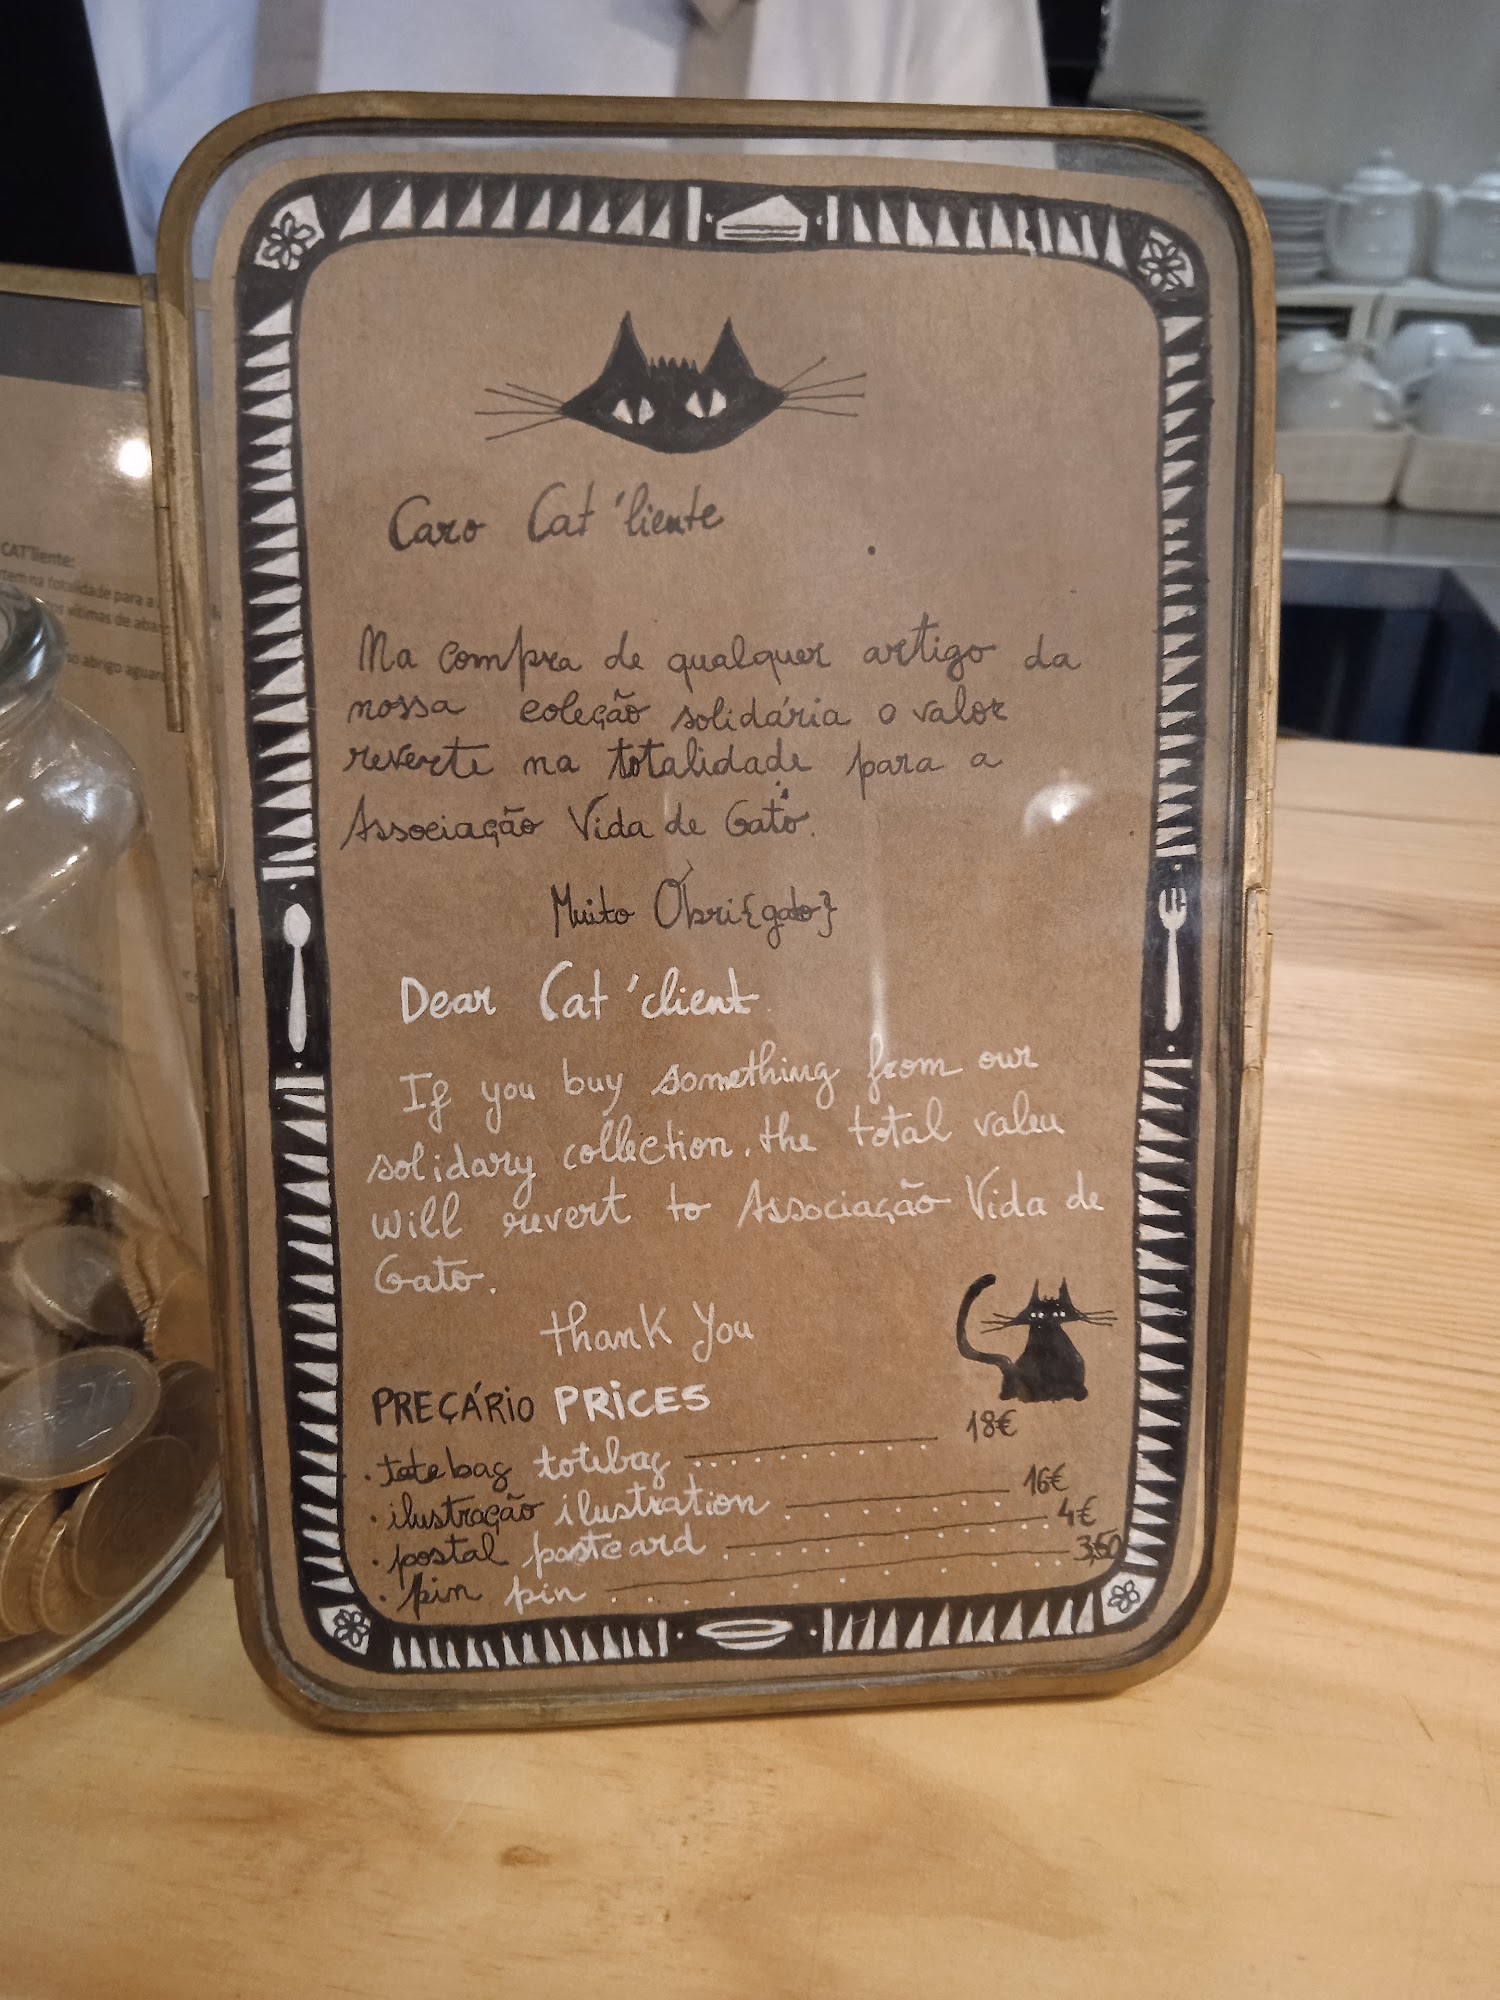 Caro Cat'liente
Na compra de qualquer artigo da
nossa coleção solidária o valor
reverte na totalidade para a
Associação Vida de Gato.
Muito Obri{gato}
Dear Cat'client
If you buy something from our
solidary collection, the total valeu
will revert to Associação Vida de
Gato.
thank You
PREÇÁRIO PRICES
• totebag totebag 18€
• ilustração ilustration 16€
• postal postcard 4€
• pin pin 3,50
CAT'liente:
tem na totalidade para a
vítimas de
abrigo